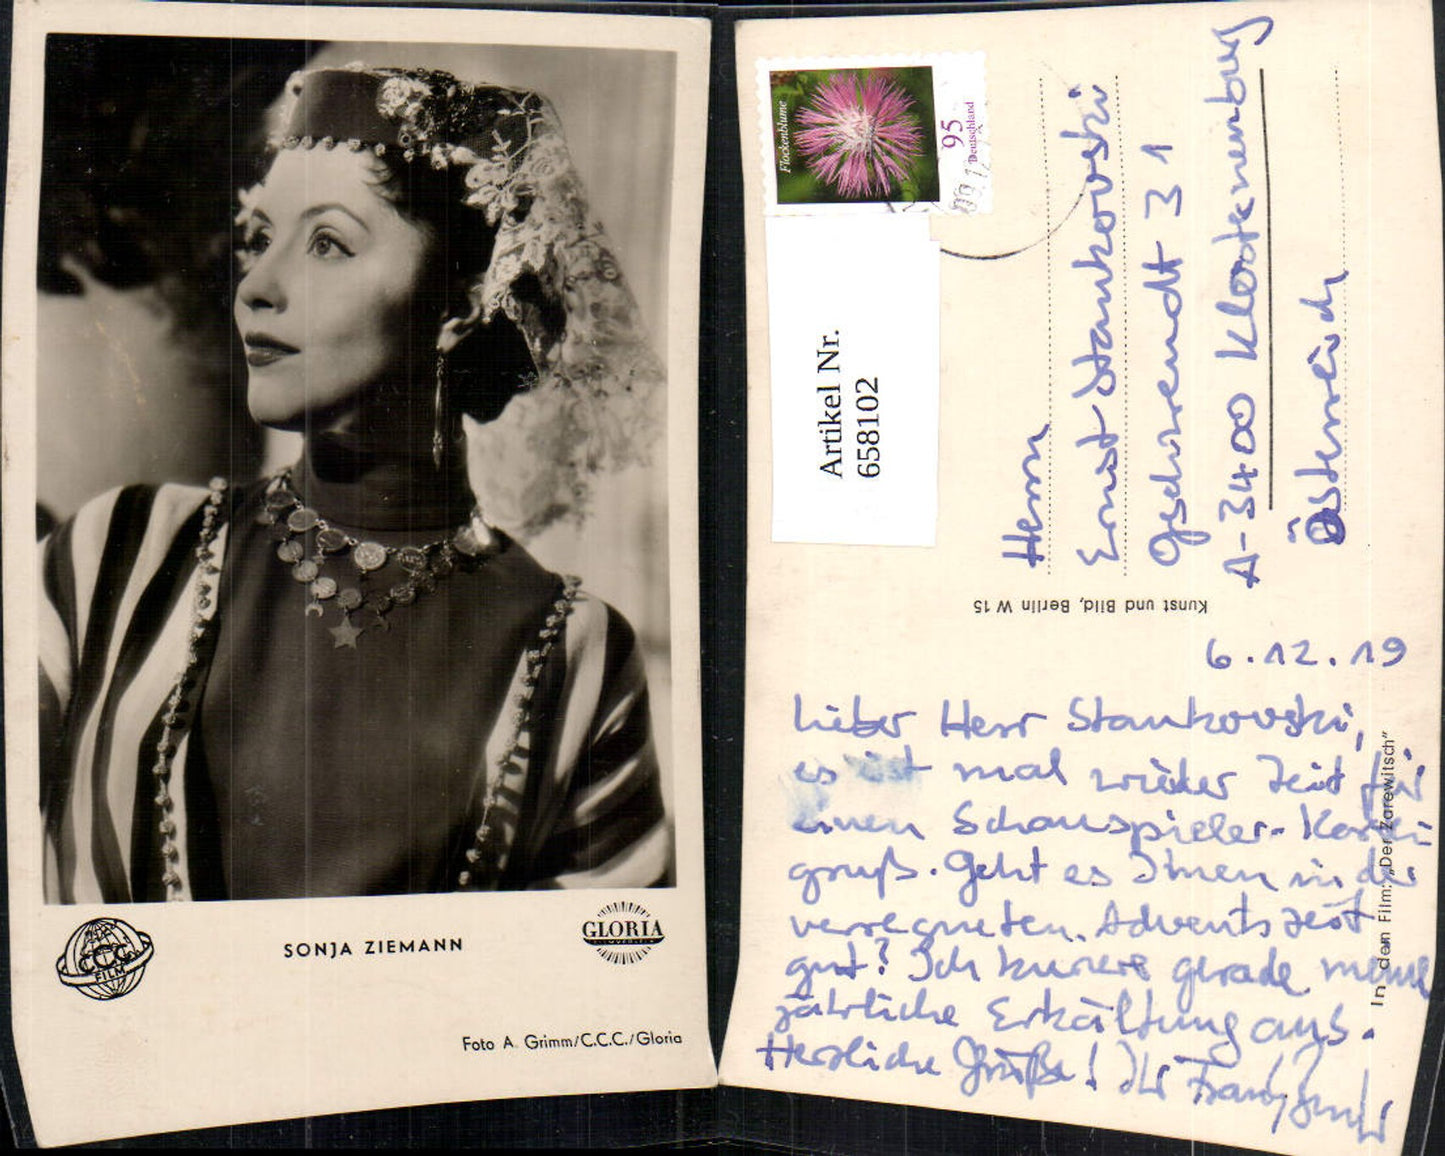 SONJA ZIEMANN
CCC
FILM
GLORIA
FILMVERLEIH
Foto A. Grimm/C.C.C./Gloria
Flockenblume
95
Deutschland
Artikel Nr.
658102
Herrn
Ernst Stankovski
Gschwendt 31
A-3400 Klosterneuburg
Österreich
Kunst und Bild, Berlin W 15
6.12.19
Lieber Herr Stankovski,
es ist mal wieder Zeit für
einen Schauspieler-Karten
gruß. Geht es Ihnen in der
verregneten Adventszeit
gut? Ich kuriere gerade meine
jährliche Erkältung aus.
Herzliche Grüße! Ihr Franz
In dem Film: „Der Zarewitsch"